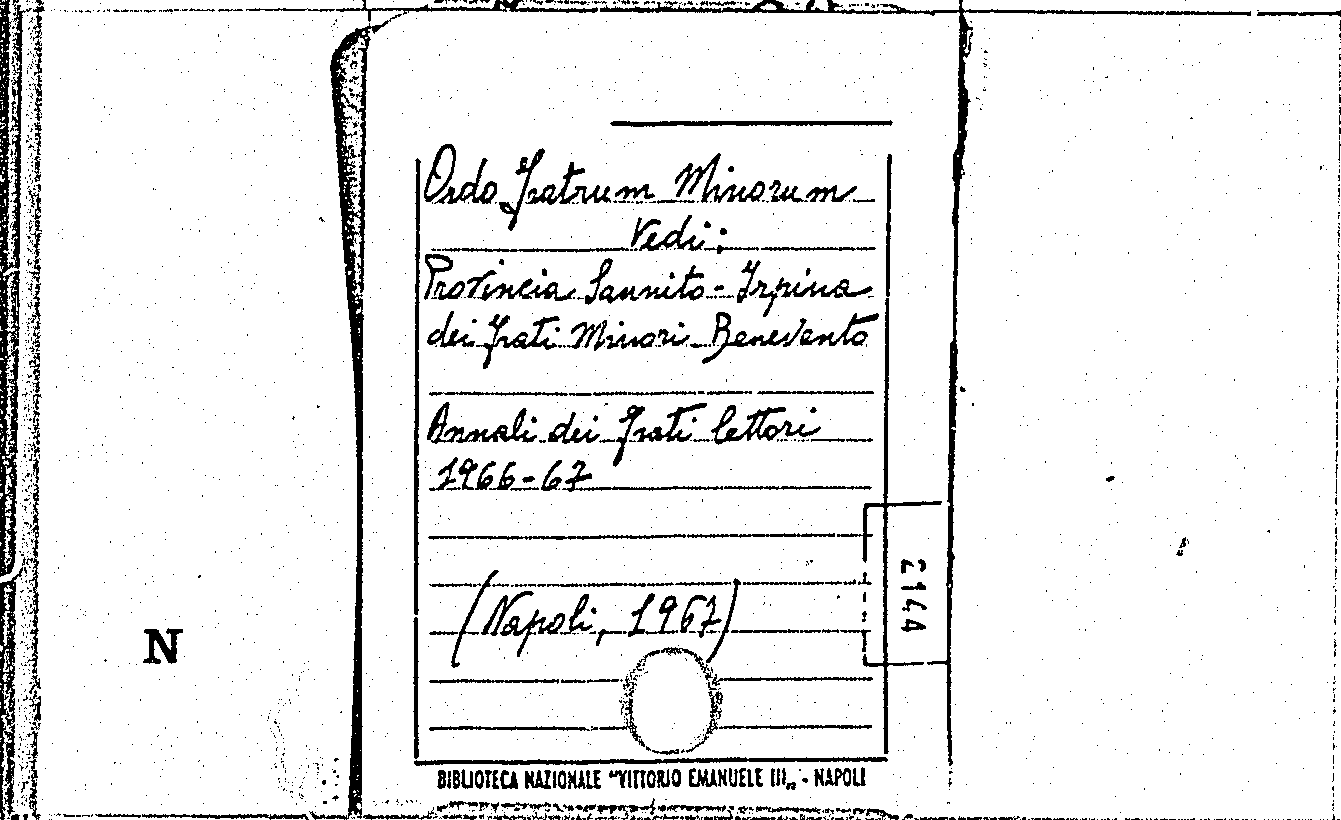 Ordo Fratrum Minorum
Vedi:
Provincia Sannito-Irpina
dei Frati Minori Benevento
Annali dei Frati lettori
1966-67
(Napoli, 1967)
2144
N
BIBLIOTECA NAZIONALE "VITTORIO EMANUELE III„ - NAPOLI